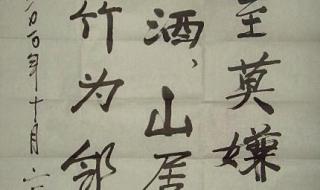 至莫嫌
酒，山居
竹为邻
二〇一〇年十月六